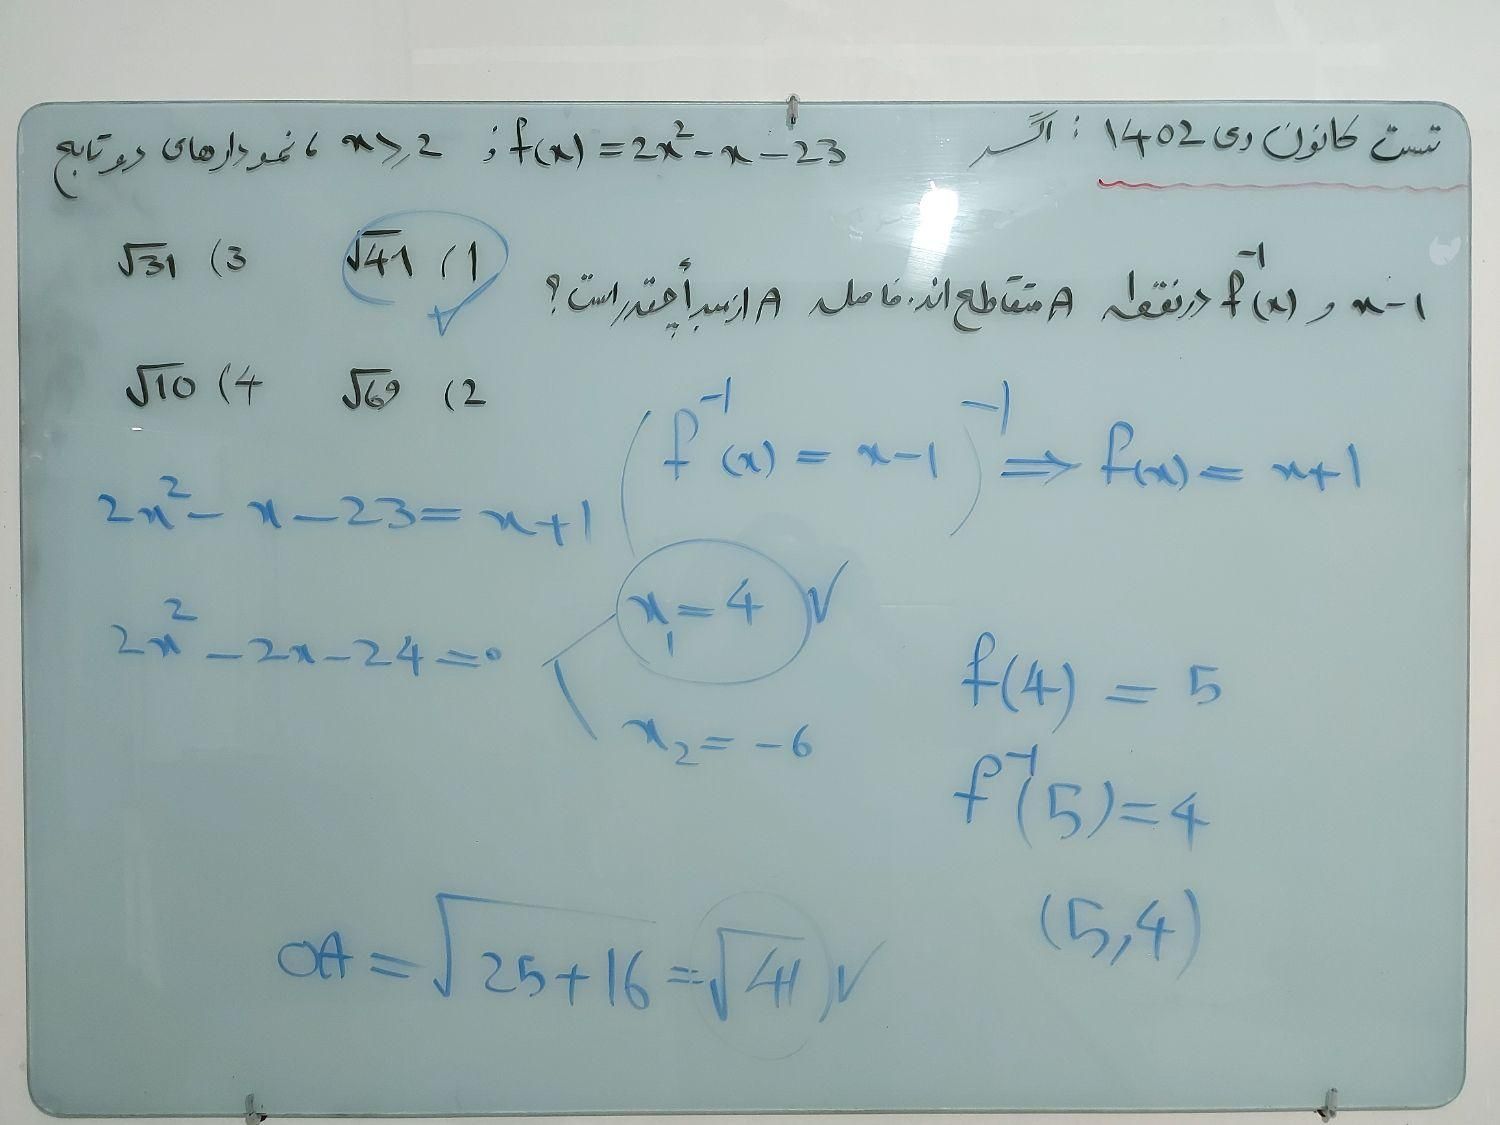 تست کانون دی 1402 : اگر f(x) = 2x² - x - 23 ; x ≥ 2 ، نمودارهای دو تابع
x - 1 و f⁻¹(x) در نقطه A متقاطع اند. فاصله A از مبدأ چقدر است؟
1) √41 3) √31
2) √69 4) √10
(f⁻¹(x) = x - 1)⁻¹ ⇒ f(x) = x + 1
2x² - x - 23 = x + 1
2x² - 2x - 24 = 0
x₁ = 4 ✓
x₂ = -6
f(4) = 5
f⁻¹(5) = 4
(5,4)
OA = √25+16 = √41 ✓